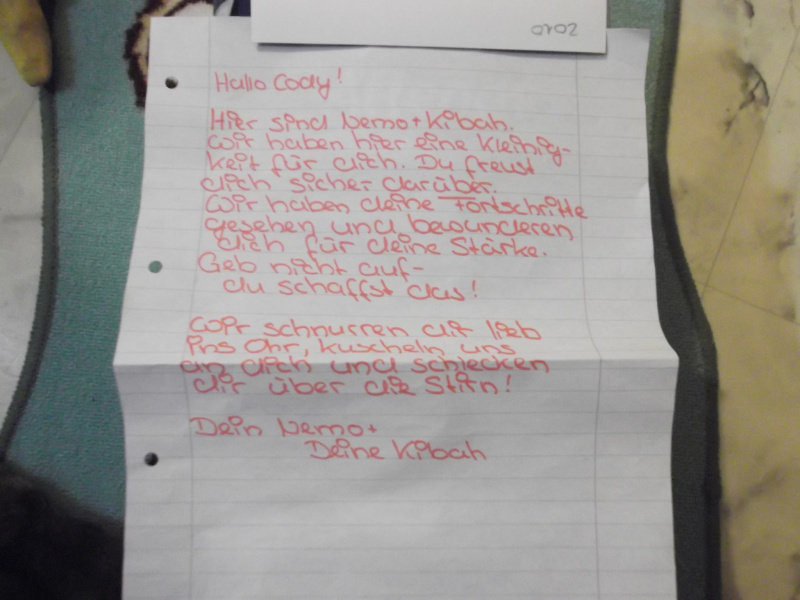 Hallo Cody!
Hier sind Nemo + Kibah.
Wir haben hier eine Kleinig-
keit für dich. Du freust
dich sicher darüber.
Wir haben deine Fortschritte
gesehen und bewunderen
dich für deine Stärke.
Geb nicht auf-
du schaffst das!
Wir schnurren dir lieb
ins Ohr, kuscheln uns
an dich und schlecken
dir über die Stirn!
Dein Nemo +
Deine Kibah